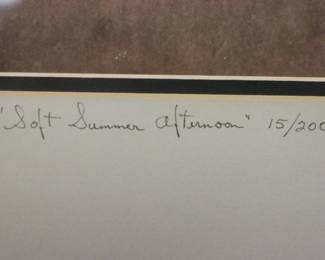 "Soft Summer Afternoon" 15/200